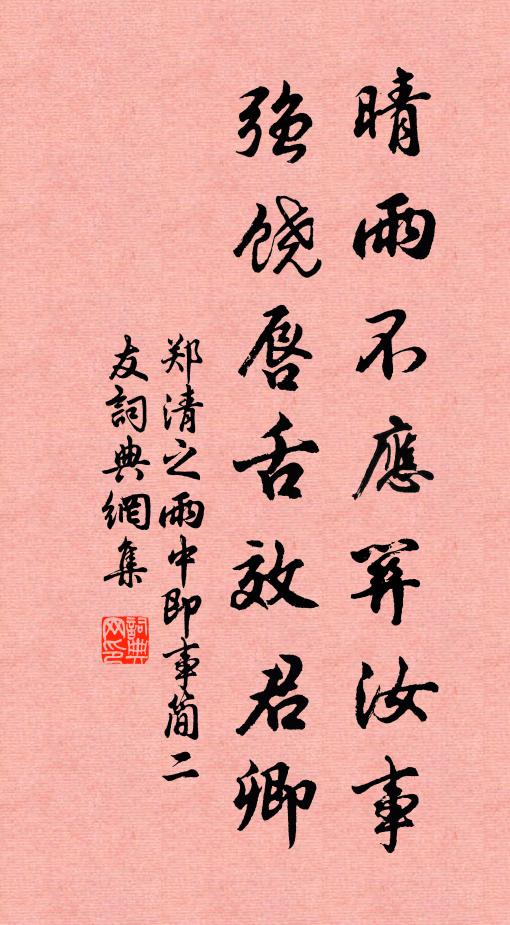 晴雨不應關汝事
強饒唇舌效君卿
郑清之雨中即事简二
友詞典網集
詞典网印